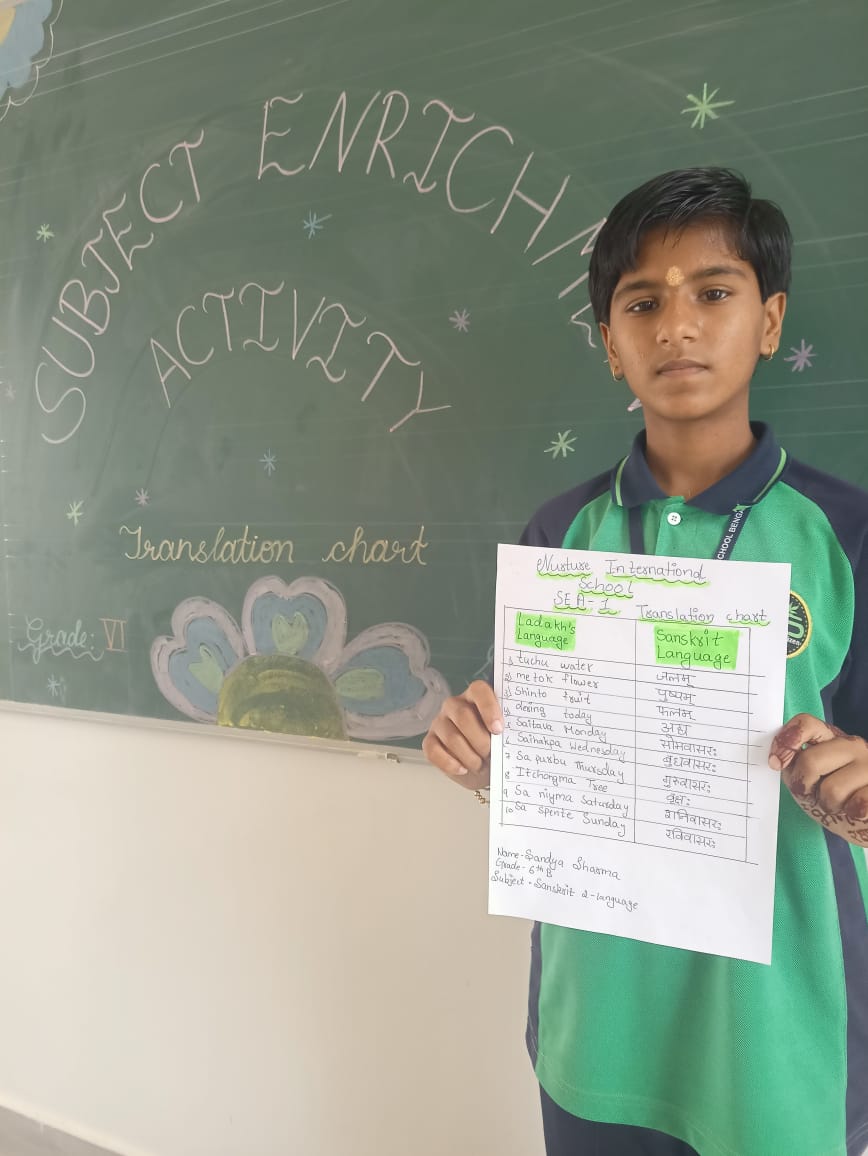 SUBJECT ENRICHM
ACTIVITY
Translation chart
Grade: VI
CHOOL BENGA
Nurture International
School
SEA-1 Translation chart
Ladakh's Language
Sanskrit Language
1) tuchu water जलम्
2) metok flower पुष्पम्
3) Shinto fruit फलम्
4) dering today अद्य
5 Saitava Monday सोमवासरः
6 Saihakpa Wednesday बुधवासरः
7 Sa purbu Thursday गुरुवासरः
8 Itchongma Tree वृक्षः
9 Sa niyma Saturday शनिवासरः
10 Sa spente Sunday रविवासरः
Name-Sandya Sharma
Grade-6th B
Subject-Sanskrit 2-language